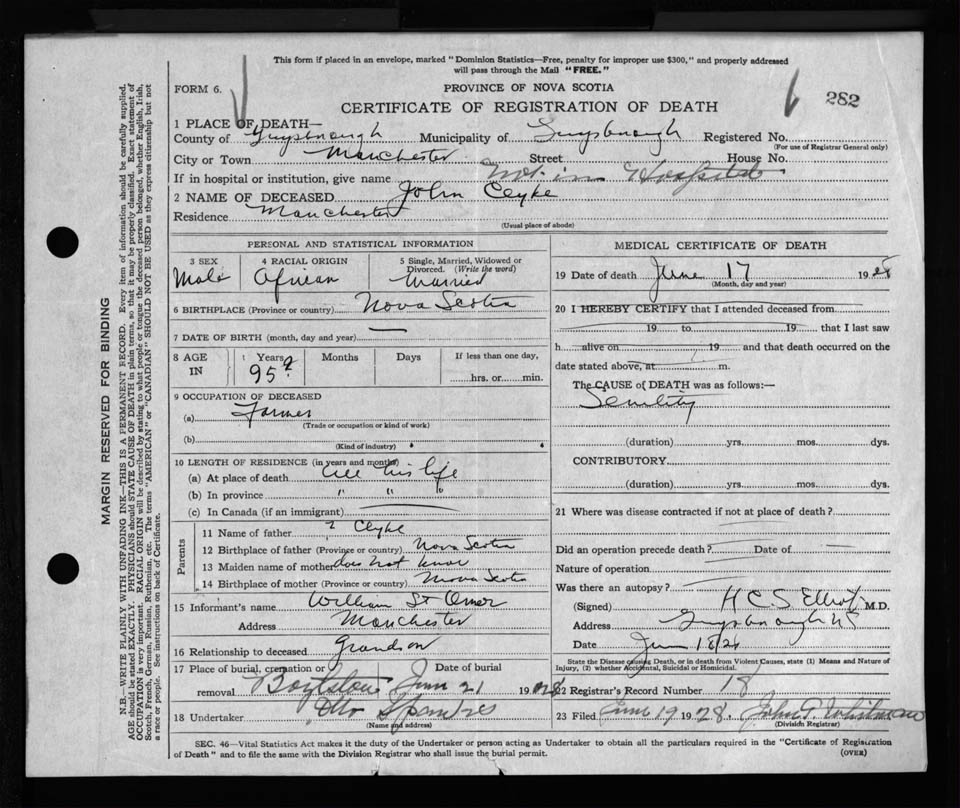 This form if placed in an envelope, marked "Dominion Statistics—Free, penalty for improper use $300," and properly addressed
will pass through the Mail "FREE."
FORM 6.
PROVINCE OF NOVA SCOTIA
CERTIFICATE OF REGISTRATION OF DEATH
282
1 PLACE OF DEATH—
County of Guysborough Municipality of Guysborough Registered No.
(For use of Registrar General only)
City or Town Manchester Street House No.
If in hospital or institution, give name Not in Hospital
2 NAME OF DECEASED John Clyke
Residence Manchester
(Usual place of abode)
PERSONAL AND STATISTICAL INFORMATION
3 SEX 4 RACIAL ORIGIN 5 Single, Married, Widowed or
Divorced. (Write the word)
Male African Married
6 BIRTHPLACE (Province or country) Nova Scotia
7 DATE OF BIRTH (month, day and year) —
8 AGE IN Years Months Days If less than one day,
95 ? hrs. or min.
9 OCCUPATION OF DECEASED
(a) Farmer
(Trade or occupation or kind of work)
(b)
(Kind of industry)
10 LENGTH OF RESIDENCE (in years and months)
(a) At place of death all his life
(b) In province " " "
(c) In Canada (if an immigrant)
Parents
11 Name of father ? Clyke
12 Birthplace of father (Province or country) Nova Scotia
13 Maiden name of mother does not know
14 Birthplace of mother (Province or country) Nova Scotia
15 Informant's name William St Omer
Address Manchester
16 Relationship to deceased Grandson
17 Place of burial, cremation or removal Date of burial
Boylston June 21 1928
18 Undertaker
(Name and address)
MEDICAL CERTIFICATE OF DEATH
19 Date of death June 17 1928
(Month, day and year)
20 I HEREBY CERTIFY that I attended deceased from
19 to 19 that I last saw
h alive on 19 and that death occurred on the
date stated above, at m.
The CAUSE of DEATH was as follows:—
Senility
(duration) yrs. mos. dys.
CONTRIBUTORY
(duration) yrs. mos. dys.
21 Where was disease contracted if not at place of death?
Did an operation precede death? Date of
Nature of operation
Was there an autopsy?
(Signed) H C S Elliot M.D.
Address Guysborough NS
Date June 18/28
State the Disease causing Death, or in death from Violent Causes, state (1) Means and Nature of
Injury, (2) whether Accidental, Suicidal or Homicidal.
22 Registrar's Record Number 18
23 Filed June 19 1928
(Division Registrar)
SEC. 46—Vital Statistics Act makes it the duty of the Undertaker or person acting as Undertaker to obtain all the particulars required in the "Certificate of Registration
of Death" and to file the same with the Division Registrar who shall issue the burial permit.
(OVER)
MARGIN RESERVED FOR BINDING
N.B.—WRITE PLAINLY WITH UNFADING INK—THIS IS A PERMANENT RECORD. Every item of information should be carefully supplied.
AGE should be stated EXACTLY. PHYSICIANS should STATE CAUSE OF DEATH in plain terms, so that it may be properly classified. Exact statement of
OCCUPATION is very important. RACIAL ORIGIN will be described by stating to what people or tongue the deceased person belonged, whether English, Irish,
Scotch, French, German, Russian, Ruthenian, etc. The terms "AMERICAN" or "CANADIAN" SHOULD NOT BE USED as they express citizenship but not
a race or people. See instructions on back of Certificate.